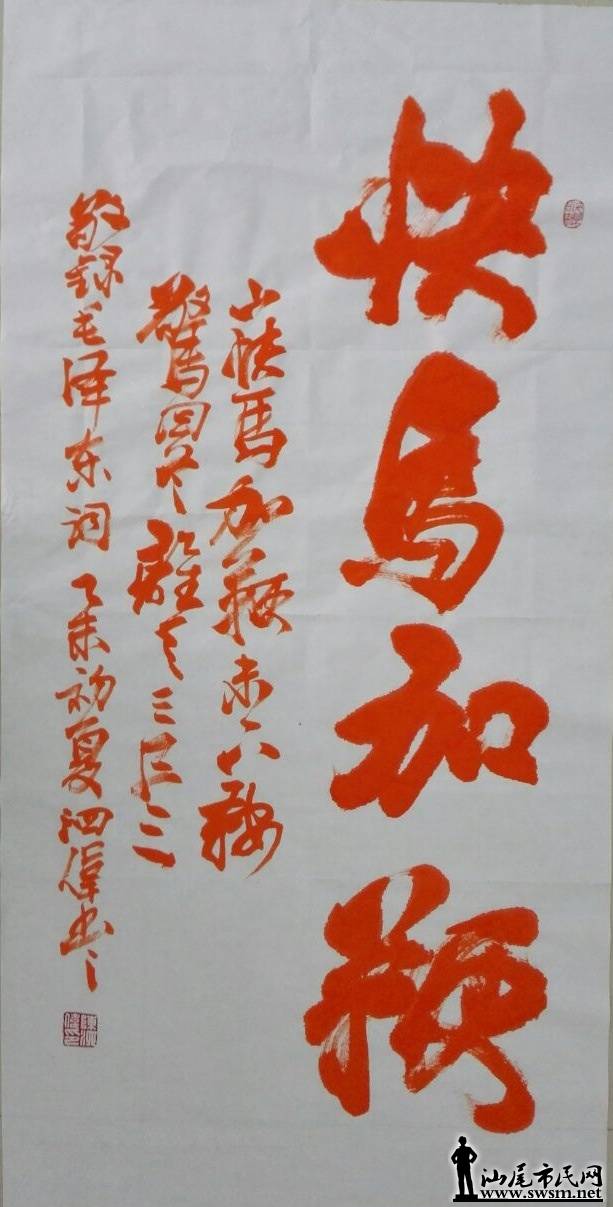 快马加鞭
山快馬加鞭未下鞍
驚回首離天三尺三
敬録毛泽东词 乙未初夏 泗偉书
汕尾市民网
www.swsm.net